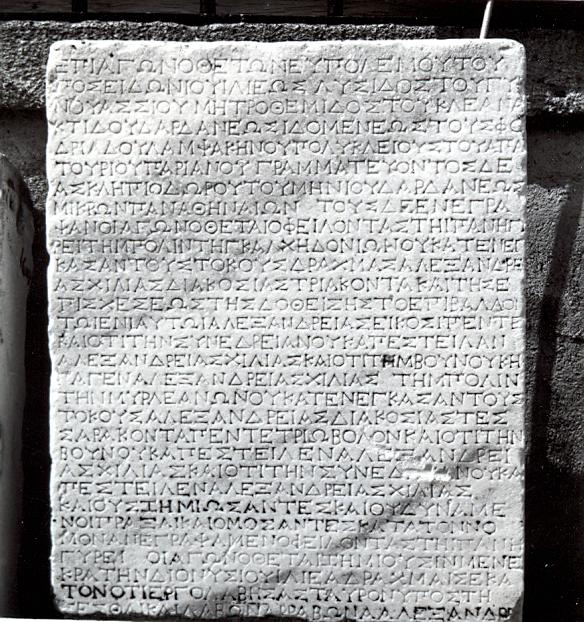 ΕΠΙΑΓΩΝΟΘΕΤΩΝΕΥΠΟΛΕΜΟΥΤΟΥ
ΠΟΣΕΙΔΩΝΙΟΥΙΛΙΕΩΣΛΥΣΙΔΟΣΤΟΥΓΙ
ΝΟΥΑΣΣΙΟΥΜΗΤΡΟΘΕΜΙΔΟΣΤΟΥΚΛΕΑΝΑ
ΚΤΙΔΟΥΔΑΡΔΑΝΕΩΣΙΔΟΜΕΝΕΩΣΤΟΥΣΦΟ
ΔΡΙΑΔΟΥΛΑΜΨΑΚΗΝΟΥΠΟΛΥΚΛΕΙΟΥΣΤΟΥΑΠΑ
ΤΟΥΡΙΟΥΠΑΡΙΑΝΟΥΓΡΑΜΜΑΤΕΥΟΝΤΟΣΔΕ
ΑΣΚΛΗΠΙΟΔΩΡΟΥΤΟΥΜΗΝΙΟΥΔΑΡΔΑΝΕΩΣ
ΜΙΚΡΩΝΠΑΝΑΘΗΝΑΙΩΝ ΤΟΥΣΔΕΕΝΕΓΡΑ
ΦΑΝΟΙΑΓΩΝΟΘΕΤΑΙΟΦΕΙΛΟΝΤΑΣΤΗΙΠΑΝΗΓ
ΡΕΙΤΗΜΠΟΛΙΝΤΗΓΚΑΛΧΗΔΟΝΙΩΝΟΥΚΑΤΕΝΕΓ
ΚΑΣΑΝΤΟΥΣΤΟΚΟΥΣΔΡΑΧΜΑΣΑΛΕΞΑΝΔΡΕ
ΑΣΧΙΛΙΑΣΔΙΑΚΟΣΙΑΣΤΡΙΑΚΟΝΤΑΚΑΙΤΗΣΕ
ΠΙΣΧΕΣΕΩΣΤΗΣΔΟΘΕΙΣΗΣΤΟΕΠΙΒΑΛΛΟΝ
ΤΩΙΕΝΙΑΥΤΩΙΑΛΕΞΑΝΔΡΕΙΑΣΕΙΚΟΣΙΠΕΝΤΕ
ΚΑΙΟΤΙΤΗΝΣΥΝΕΔΡΕΙΑΝΟΥΚΑΠΕΣΤΕΙΛΑΝ
ΑΛΕΞΑΝΔΡΕΙΑΣΧΙΛΙΑΣΚΑΙΟΤΙΤΗΜΒΟΥΝΟΥΚΗ
ΓΑΓΕΝΑΛΕΞΑΝΔΡΕΙΑΣΧΙΛΙΑΣ ΤΗΜΠΟΛΙΝ
ΤΗΝΜΥΡΛΕΑΝΩΝΟΥΚΑΤΕΝΕΓΚΑΣΑΝΤΟΥΣ
ΤΟΚΟΥΣΑΛΕΞΑΝΔΡΕΙΑΣΔΙΑΚΟΣΙΑΣΤΕΣ
ΣΑΡΑΚΟΝΤΑΠΕΝΤΕΤΡΙΩΒΟΛΟΝΚΑΙΟΤΙΤΗΝ
ΒΟΥΝΟΥΚΑΠΕΣΤΕΙΛΕΝΑΛΕΞΑΝΔΡΕΙ
ΑΣΧΙΛΙΑΣΚΑΙΟΤΙΤΗΝΣΥΝΕΔ ΑΝΟΥΚΑ
ΠΕΣΤΕΙΛΕΝΑΛΕΞΑΝΔΡΕΙΑΣΧΙΛΙΑΣ
ΚΑΙΟΥΣΖΗΜΙΩΣΑΝΤΕΣΚΑΙΟΥΔΥΝΑΜΕ
ΝΟΙΠΡΑΞΑΙΚΑΙΟΜΟΣΑΝΤΕΣΚΑΤΑΤΟΝΝΟ
ΜΟΝΑΝΕΓΡΑΨΑΜΕΝΟΦΕΙΛΟΝΤΑΣΤΗΙΠΑΝΗ
ΓΥΡΕΙ ΟΙΑΓΩΝΟΘΕΤΑΙΖΗΜΙΟΥΣΙΝΜΕΝΕ
ΚΡΑΤΗΝΔΙΟΝΥΣΙΟΥΙΛΙΕΑΔΡΑΧΜΑΙΣΕΚΑ
ΤΟΝΟΤΙΕΡΓΟΛΑΒΗΣΑΣΤΑΥΡΟΝΥΠΟΣΤΗ
ΣΕΣΘΑΙΚΑΙΛΑΒΩΝΑΡΡΑΒΩΝΑΑΛΕΞΑΝΔΡ